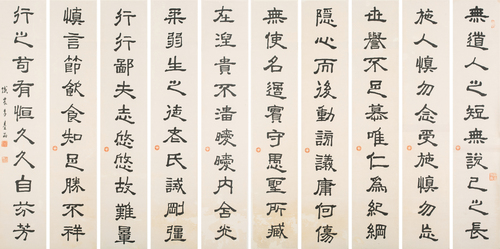 無道人之短無說己之長
施人慎勿念受施慎勿忘
世譽不足慕唯仁為紀綱
隱心而後動謗議庸何傷
無使名過實守愚聖所臧
在涅貴不淄曖曖內含光
柔弱生之徒老氏誡剛彊
行行鄙夫志悠悠故難量
慎言節飲食知足勝不祥
行之苟有恒久久自芬芳